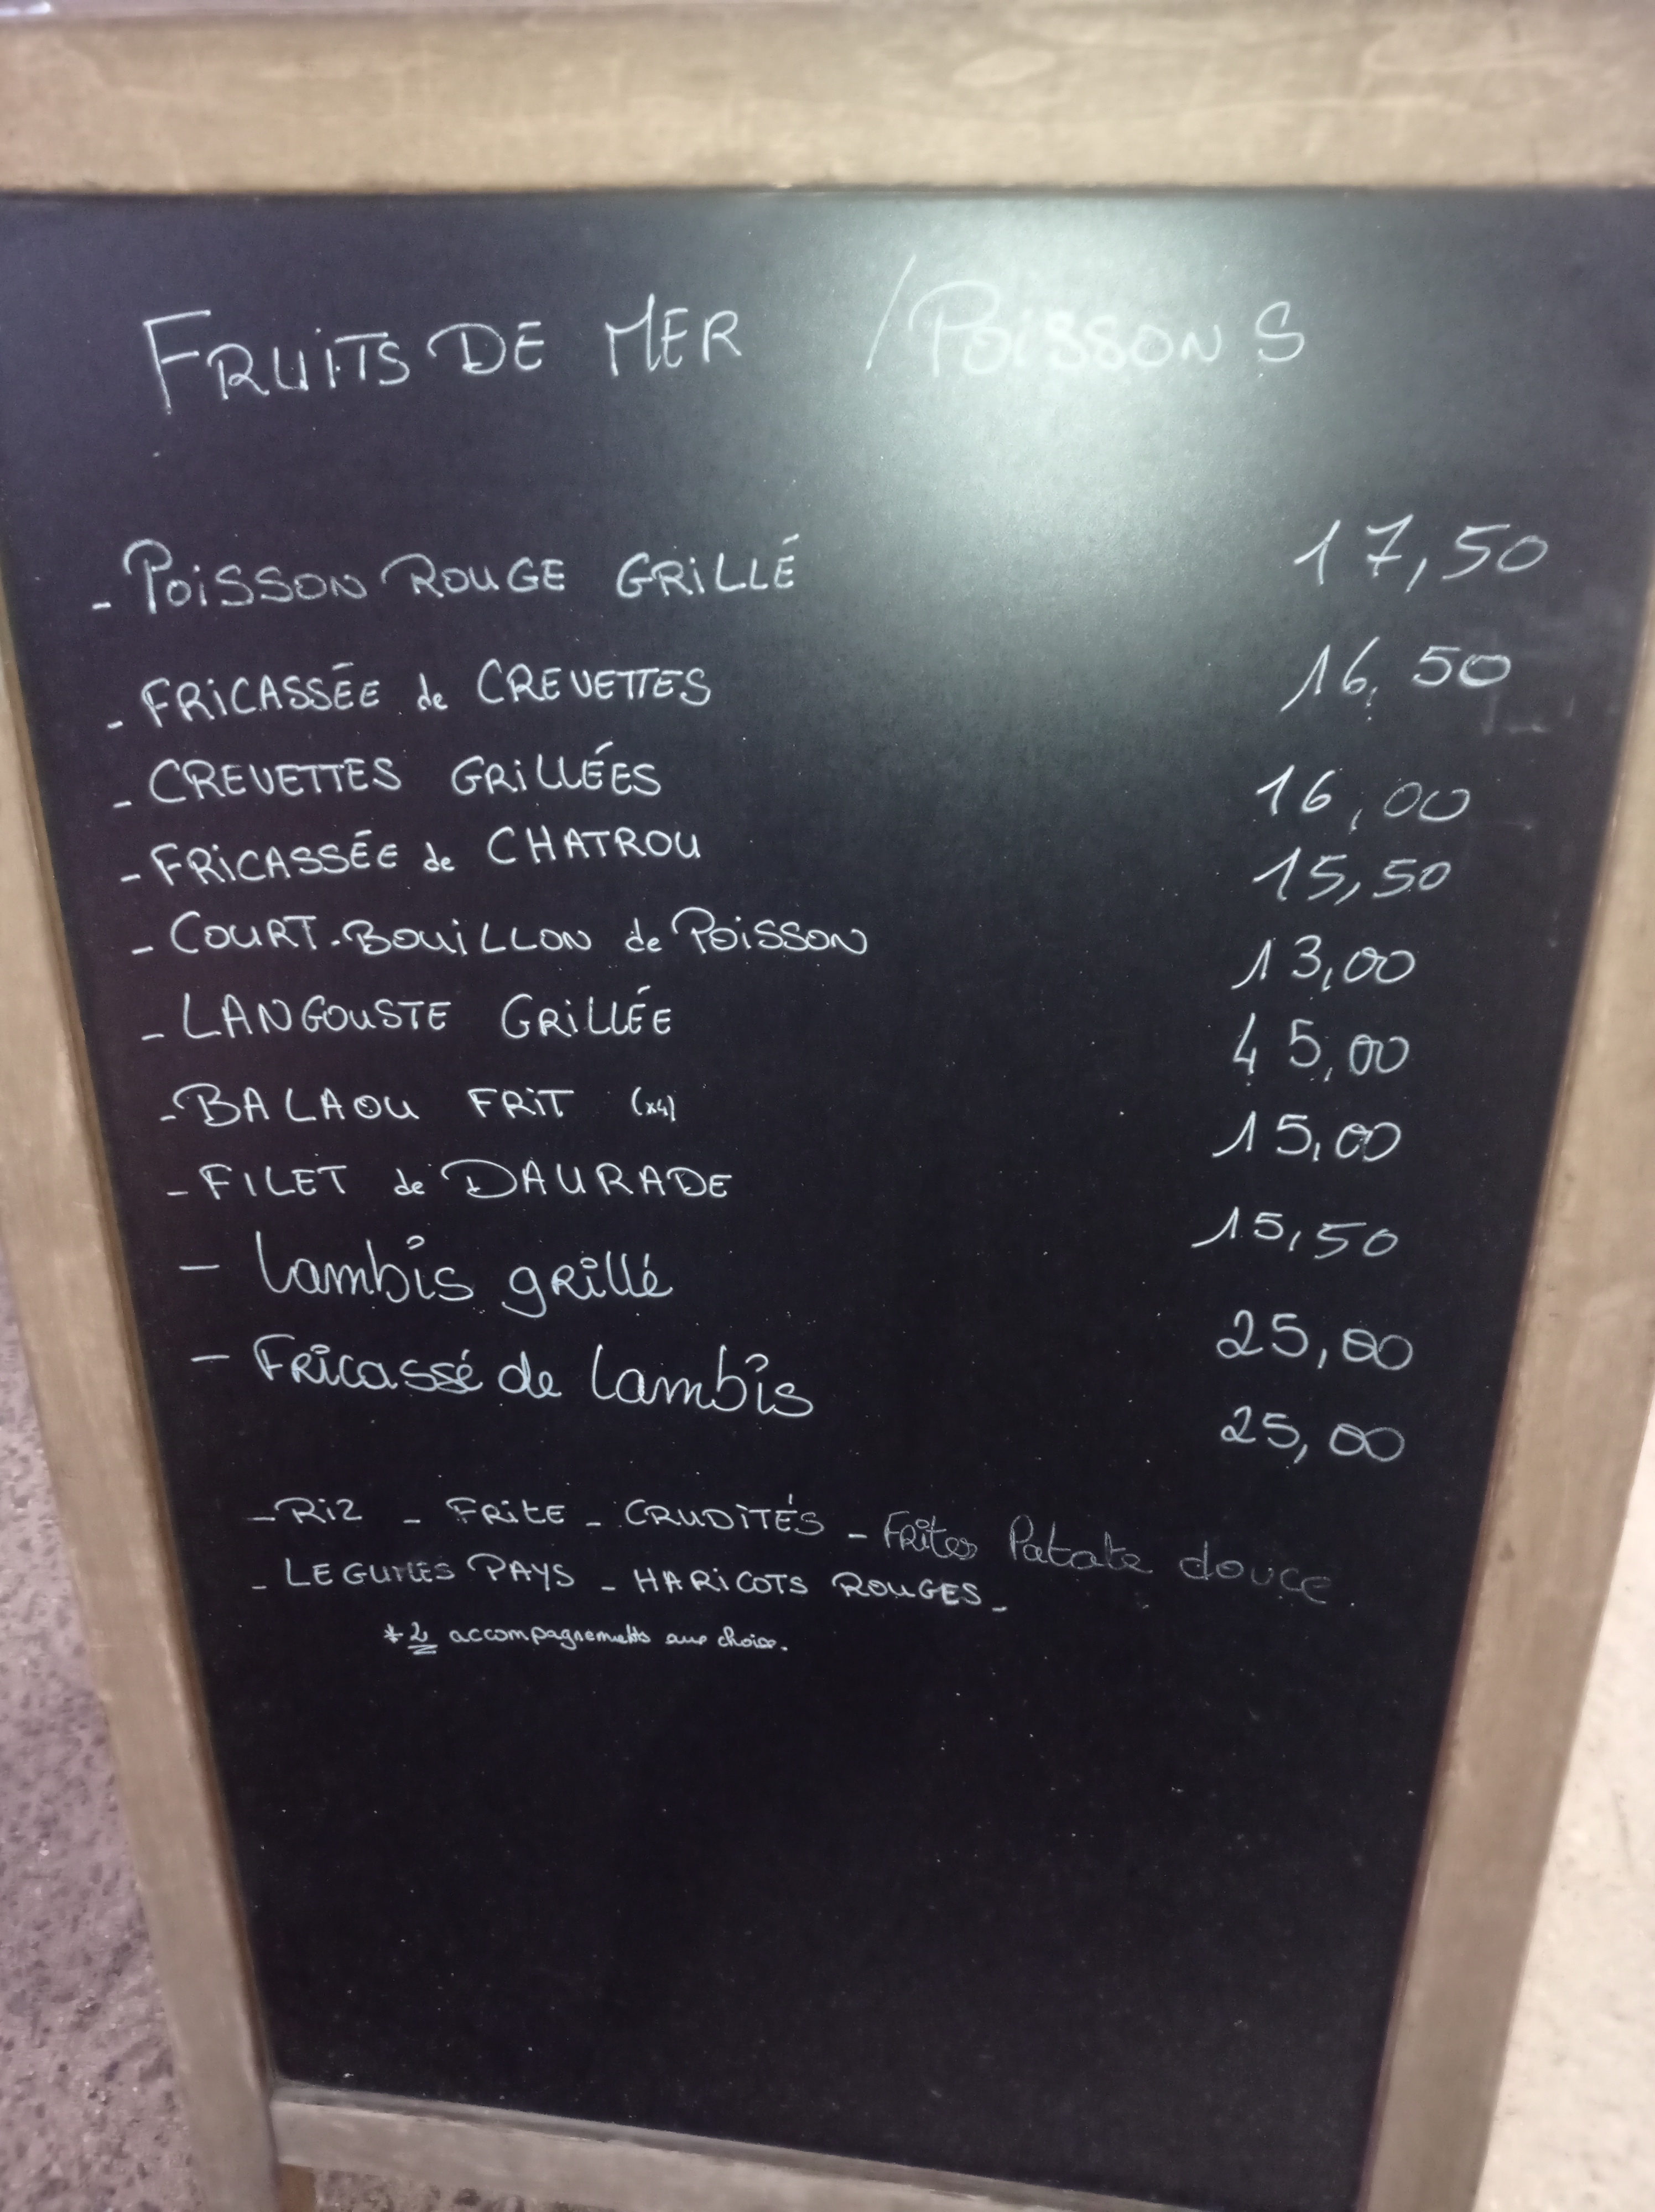 FRUITS DE MER / POISSONS
- POISSON ROUGE GRILLÉ 17,50
- FRICASSÉE de CREVETTES 16,50
- CREVETTES GRILLÉES 16,00
- FRICASSÉE de CHATROU 15,50
- COURT-BOUILLON de POISSON 13,00
- LANGOUSTE GRILLÉE 45,00
- BALAOU FRIT (x4) 15,00
- FILET de DAURADE 15,50
- Lambis grillé 25,00
- Fricassé de Lambis 25,00
- RIZ - FRITE - CRUDITÉS - Frites Patate douce.
- LEGUMES PAYS - HARICOTS ROUGES -
* 2 accompagnements aux choix.